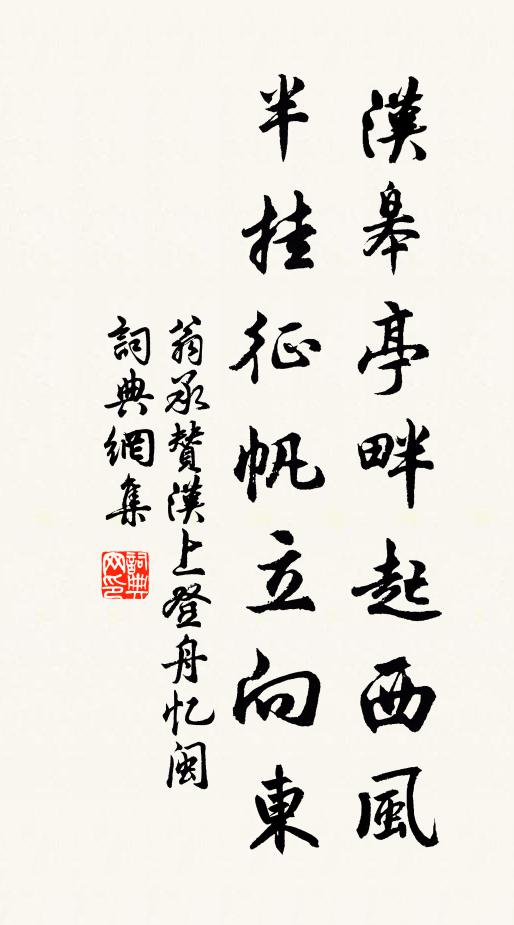 漢皋亭畔起西風
半挂征帆立向東
翁承贊漢上登舟忆閩
詞典網集
詞典网印